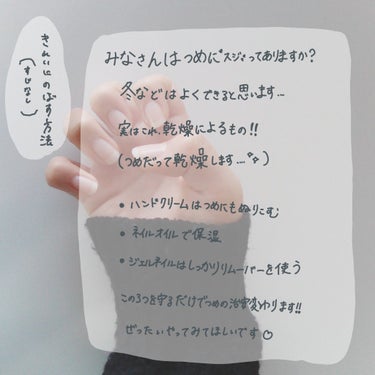 きれいにのばす方法
(すじなし)
みなさんはつめに"スジ"ってありますか?
冬などはよくできると思います…
実はこれ、乾燥によるもの!!
(つめだって乾燥します…)
• ハンドクリームはつめにもぬりこむ
• ネイルオイルで保湿
• ジェルネイルはしっかりリムーバーを使う
この3つを守るだけでつめの治安変わります!!
ぜったいやってみてほしいです